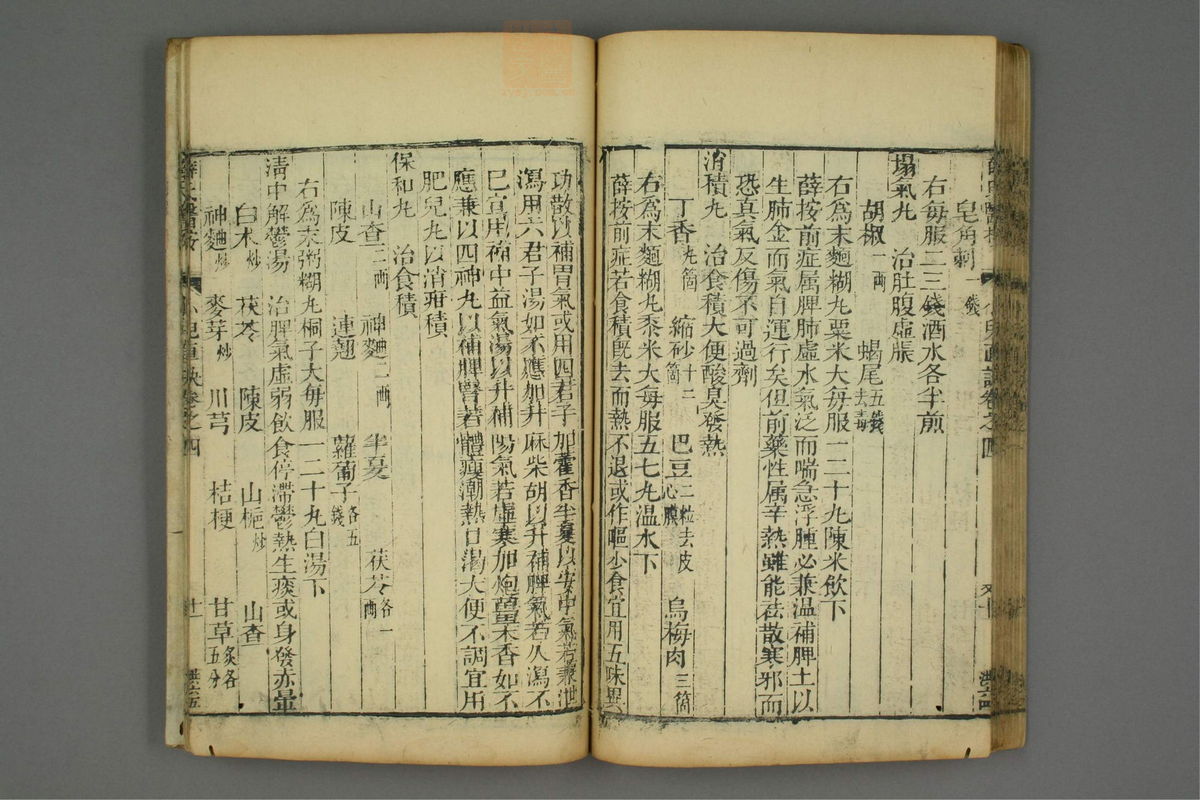 皂角刺一錢
右每服二三錢酒水各半煎
塌氣丸　治肚腹虛脹
胡椒一兩　蝎尾五錢去毒
右爲末麵糊丸粟米大每服一二十丸陳米飲下
薛按前症属脾肺虛水氣泛而喘急浮腫必兼温補脾土以
生肺金而氣自運行矣但前藥性属辛熱雖能祛散寒邪而
恐真氣反傷不可過劑
消積丸　治食積大便酸臭發熱
丁香九箇　縮砂十二箇　巴豆二粒去皮心膜　烏梅肉三箇
右爲末麵糊丸黍米大每服五七丸温水下
薛按前症若食積既去而熱不退或作嘔少食宜用五味異
功散以補胃氣或用四君子加藿香半夏以安中氣若兼泄
瀉用六君子湯如不應加升麻柴胡以升補脾氣若久瀉不
已宜用補中益氣湯以升補陽氣若虛寒加炮薑木香如不
應兼以四神丸以補脾腎若體瘦潮熱口渴大便不調宜用
肥兒丸以消疳積
保和丸　治食積
山查二兩　神麯二兩　半夏　茯苓各一兩
陳皮　連翹　蘿蔔子各五錢
右爲末粥糊丸桐子大每服一二十丸白湯下
清中解鬱湯　治脾氣虛弱飲食停滯鬱熱生痰或身發赤暈
白术炒　茯苓　陳皮　山梔炒　山查
神麯炒　麥芽炒　川芎　桔梗　甘草炙各五分
卷之四
十一